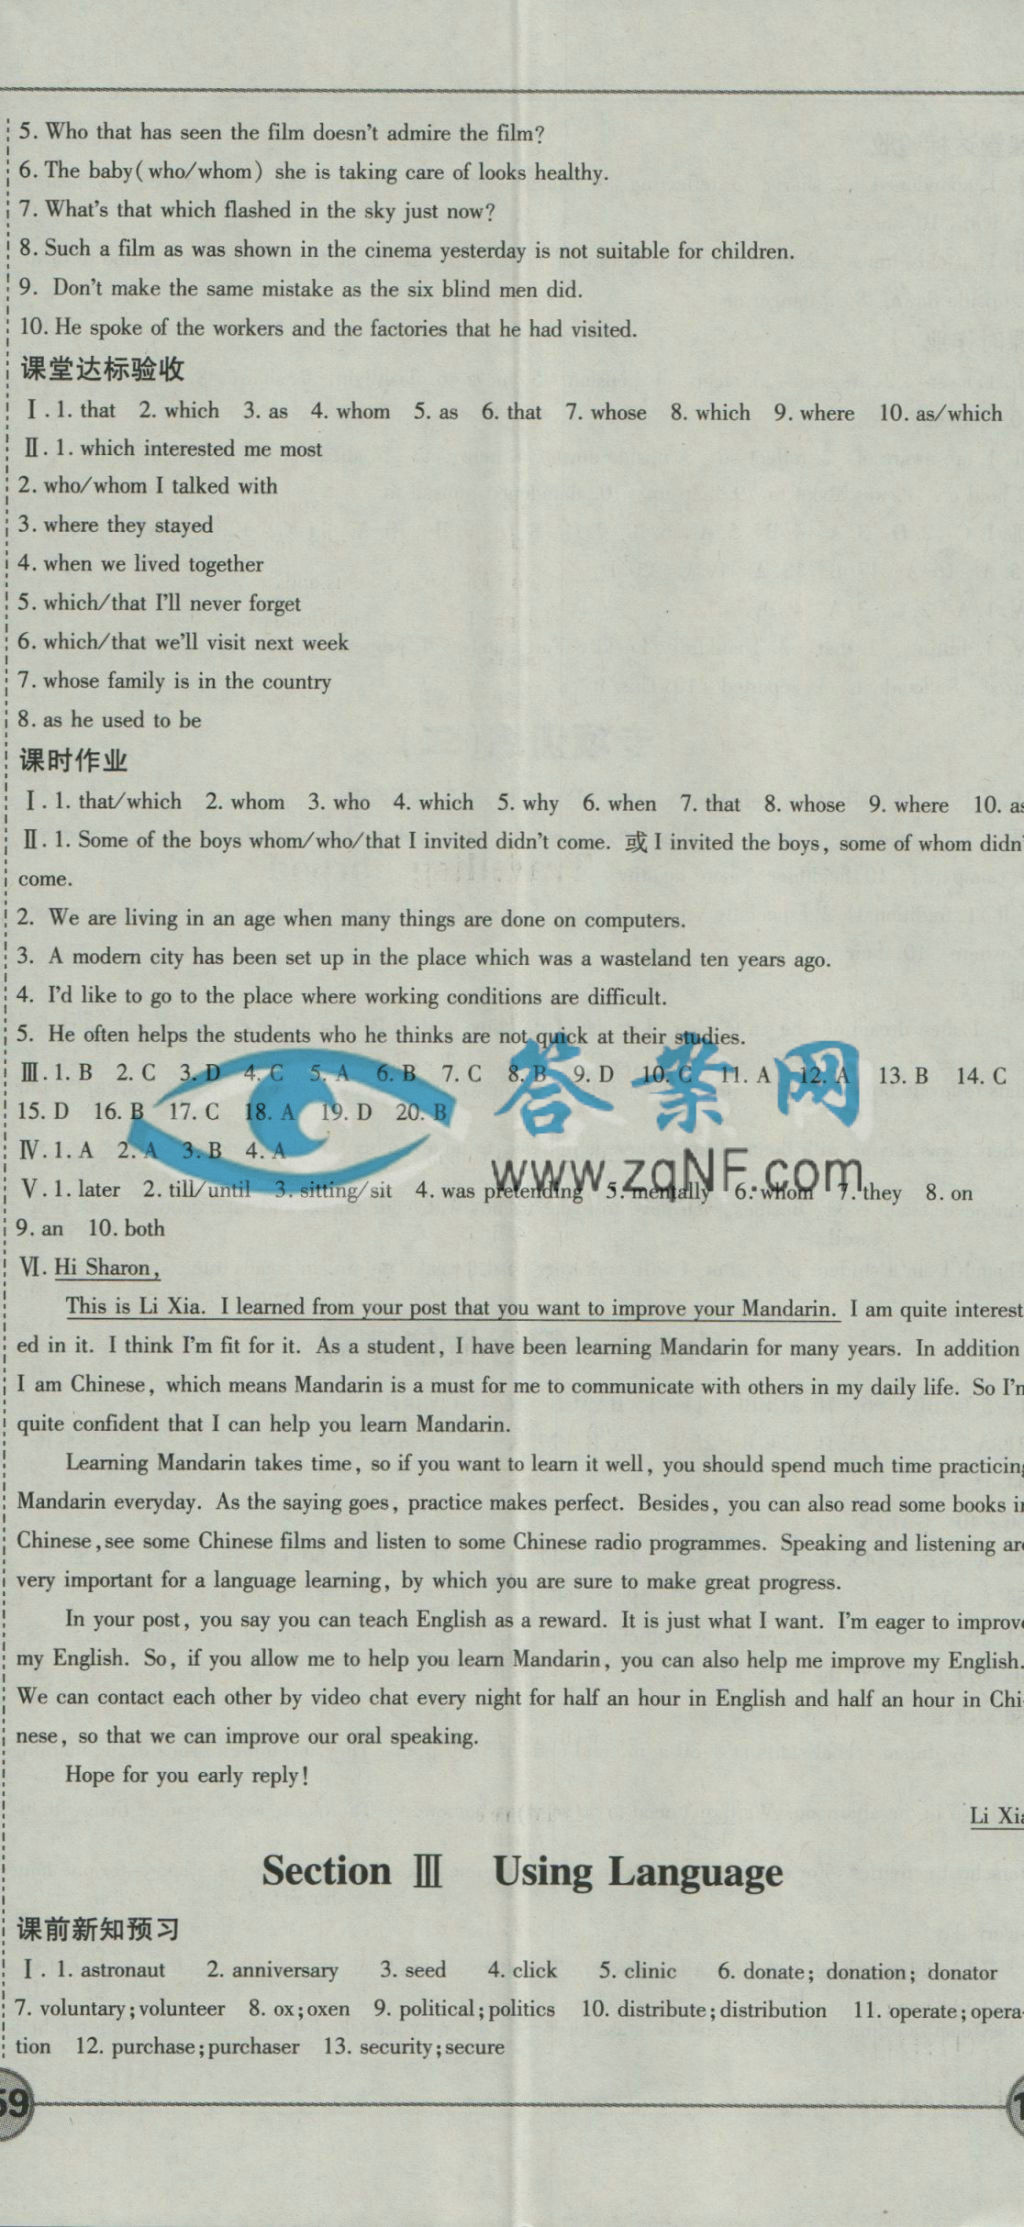 5. Who that has seen the film doesn't admire the film?
6. The baby(who/whom) she is taking care of looks healthy.
7. What's that which flashed in the sky just now?
8. Such a film as was shown in the cinema yesterday is not suitable for children.
9. Don't make the same mistake as the six blind men did.
10. He spoke of the workers and the factories that he had visited.
课堂达标验收
Ⅰ. 1. that 2. which 3. as 4. whom 5. as 6. that 7. whose 8. which 9. where 10. as/which
Ⅱ. 1. which interested me most
2. who/whom I talked with
3. where they stayed
4. when we lived together
5. which/that I'll never forget
6. which/that we'll visit next week
7. whose family is in the country
8. as he used to be
课时作业
Ⅰ. 1. that/which 2. whom 3. who 4. which 5. why 6. when 7. that 8. whose 9. where 10. as
Ⅱ. 1. Some of the boys whom/who/that I invited didn't come. 或 I invited the boys, some of whom didn'
come.
2. We are living in an age when many things are done on computers.
3. A modern city has been set up in the place which was a wasteland ten years ago.
4. I'd like to go to the place where working conditions are difficult.
5. He often helps the students who he thinks are not quick at their studies.
Ⅲ. 1. B 2. C 3. D 4. C 5. A 6. B 7. C 8. B 9. D 10. C 11. A 12. A 13. B 14. C
15. D 16. B 17. C 18. A 19. D 20. B
答案网
Ⅳ. 1. A 2. A 3. B 4. A
www.zqNF.com
Ⅴ. 1. later 2. till/until 3. sitting/sit 4. was pretending 5. mentally 6. whom 7. they 8. on
9. an 10. both
Ⅵ. Hi Sharon,
This is Li Xia. I learned from your post that you want to improve your Mandarin. I am quite interest
ed in it. I think I'm fit for it. As a student, I have been learning Mandarin for many years. In addition
I am Chinese, which means Mandarin is a must for me to communicate with others in my daily life. So I'm
quite confident that I can help you learn Mandarin.
Learning Mandarin takes time, so if you want to learn it well, you should spend much time practicing
Mandarin everyday. As the saying goes, practice makes perfect. Besides, you can also read some books in
Chinese,see some Chinese films and listen to some Chinese radio programmes. Speaking and listening are
very important for a language learning, by which you are sure to make great progress.
In your post, you say you can teach English as a reward. It is just what I want. I'm eager to improve
my English. So, if you allow me to help you learn Mandarin, you can also help me improve my English.
We can contact each other by video chat every night for half an hour in English and half an hour in Chi-
nese, so that we can improve our oral speaking.
Hope for you early reply!
Li Xia
Section Ⅲ Using Language
课前新知预习
Ⅰ. 1. astronaut 2. anniversary 3. seed 4. click 5. clinic 6. donate; donation; donator
7. voluntary;volunteer 8. ox;oxen 9. political;politics 10. distribute;distribution 11. operate;opera-
tion 12. purchase;purchaser 13. security;secure
59